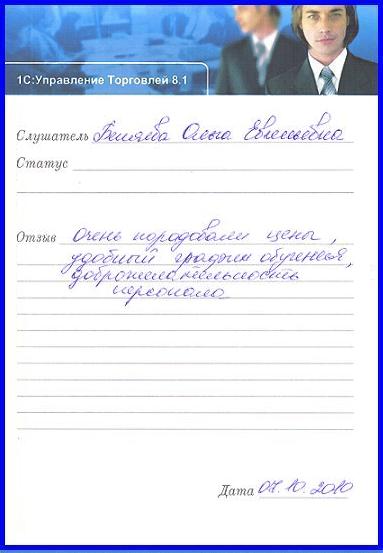 1С:Управление Торговлей 8.1
Слушатель Беляева Ольга Евгеньевна
Статус
Отзыв Очень порадовали цены,
удобный график обучения,
доброжелательность
персонала
Дата 07.10.2010